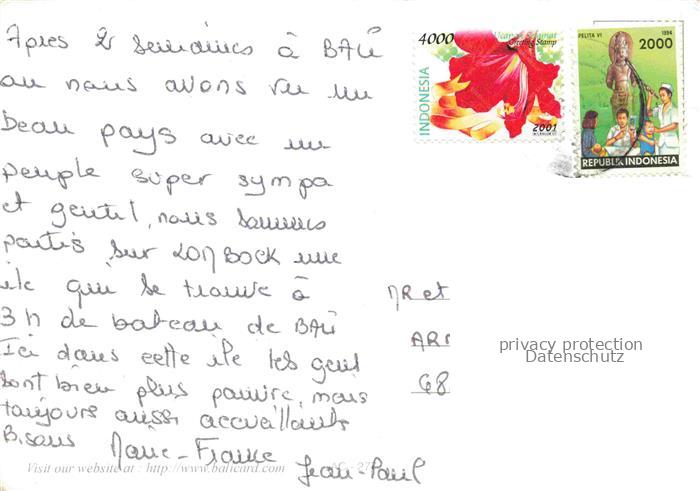 Apres 2 semaines à BALi
ou nous avons vu un
beau pays avec un
peuple super sympa
et gentil, nous sommes
partis sur LOMBOCK une
ile qui se trouve à
3 h de bateau de BALi
Ici dans cette ile les gens
sont bien plus pauvre, mais
toujours aussi accueillants
Bisous Marie-France
Jean-Paul
Visit our website at : http://www.balicard.com
4000
Greeting Stamp
INDONESIA
2001
PELITA VI
1994
2000
REPUBLIK INDONESIA
MR et
68
privacy protection
Datenschutz